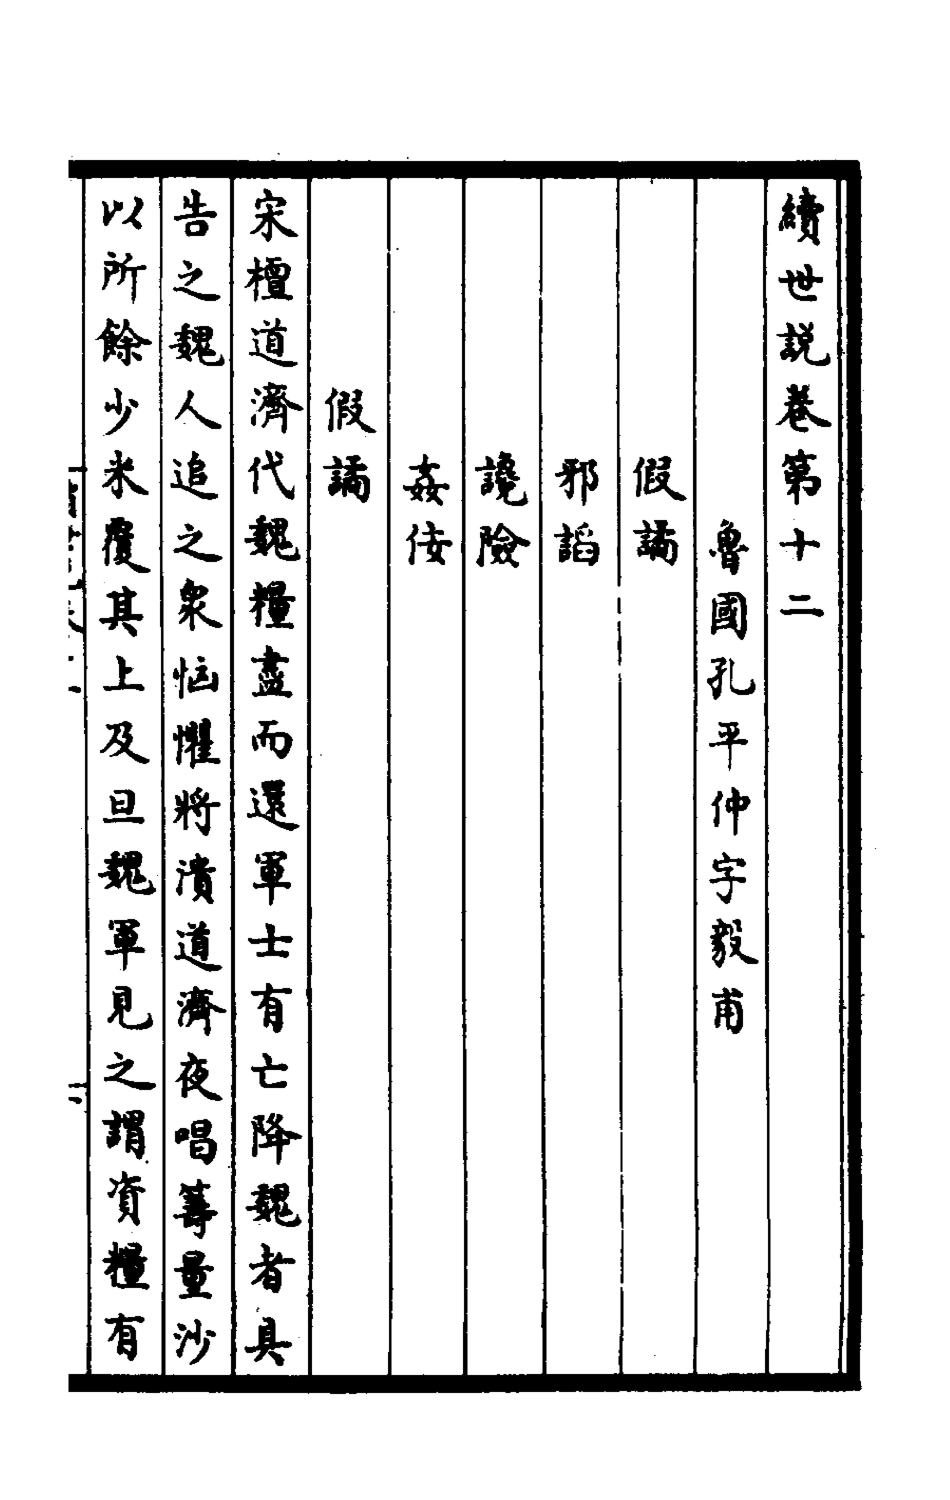 續世説卷第十二
魯國孔平仲字毅甫
假譎
邪謟
讒險
姦佞
假譎
宋檀道濟代魏糧盡而還軍士有亡降魏者具
告之魏人追之衆恼懼將潰道濟夜唱籌量沙
以所餘少米覆其上及旦魏軍見之謂資糧有